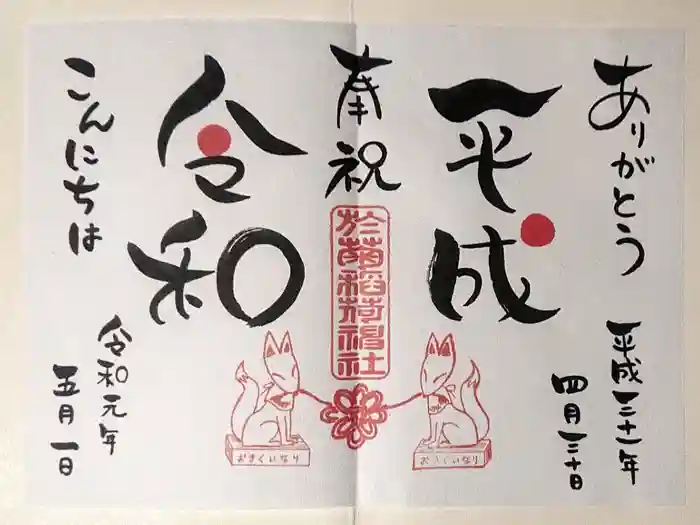 ありがとう
平成
平成三十一年
四月三十日
奉祝
於菊稲荷神社
おきくいなり
令和
こんにちは
令和元年
五月一日
おきくいなり